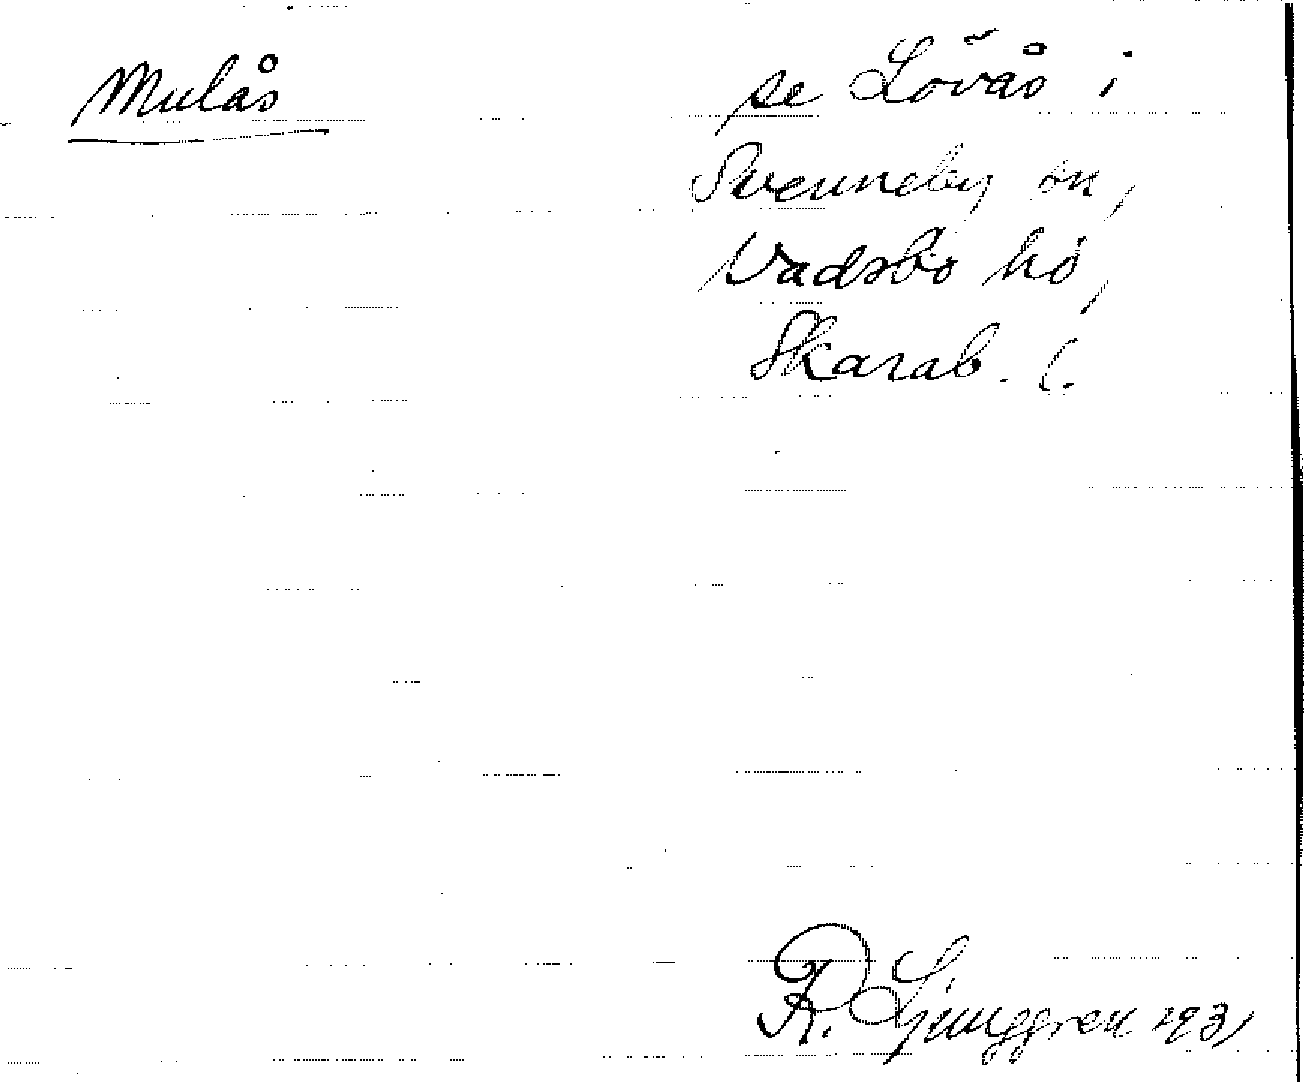 Mulås
se Lövås i
Svenneby sn,
Vadsbo hd,
Skarab. l.
R. Ljunggren 1931